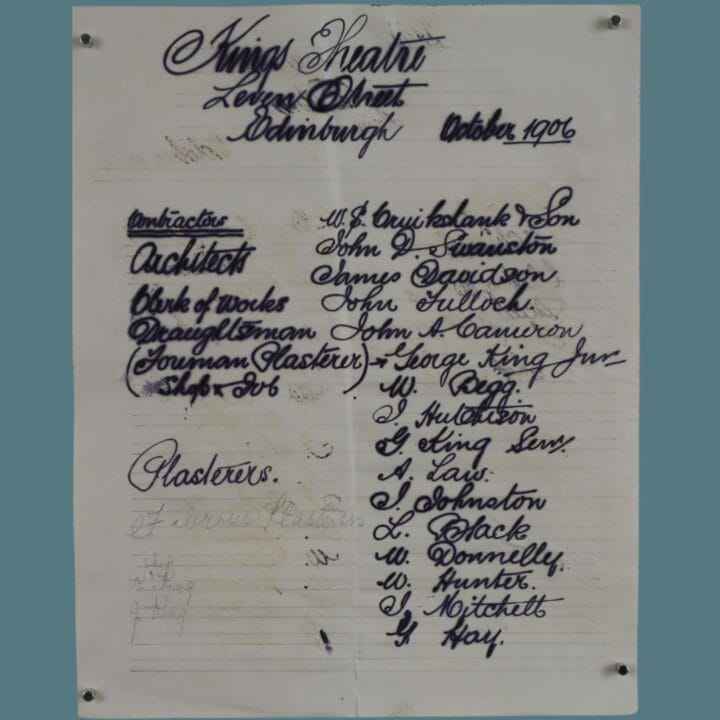 Kings Theatre
Leven Street
Edinburgh October 1906
Contractors W. S. Cruikshank & Son
Architects John D. Swanston
James Davidson
Clerk of Works John Tulloch
Draughtsman John A. Cameron
(Foreman Plasterer) George King Junr
Shop & Job W. Begg.
J. Hutchison
G. King Senr.
Plasterers. A. Law.
J. Johnston
Fibrous Plasterers L. Black
W. Donnelly.
Shop W. Hunter.
King J. Mitchell
J. King G. Hay.